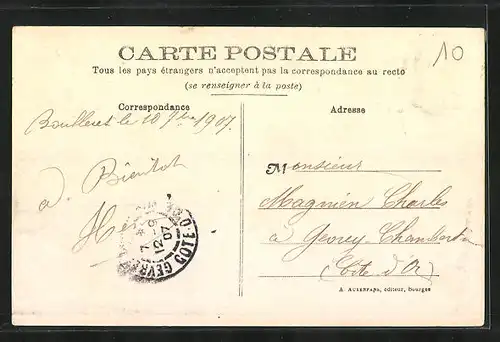 CARTE POSTALE
10
Tous les pays étrangers n'acceptent pas la correspondance au recto
(se renseigner à la poste)
Correspondance
Boulleret le 10 7bre 1907.
à Bientot
Adresse
Monsieur
Magnien Charles
à Gevrey-Chambertin
(Côte d'Or)
GEVRE
COTE-D'O
12
07
A. AUXENFANS, éditeur, Bourges